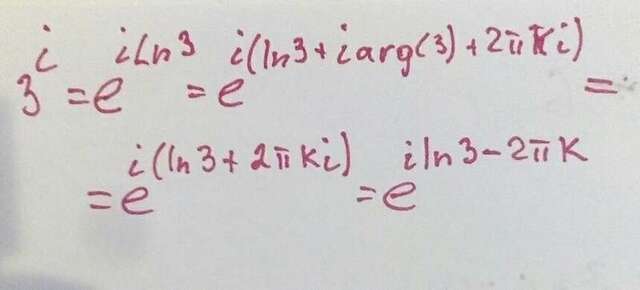 3^i = e^{i Ln 3} = e^{i(ln 3 + i arg(3) + 2πKi)} =
= e^{i(ln 3 + 2πKi)} = e^{i ln 3 - 2πK}